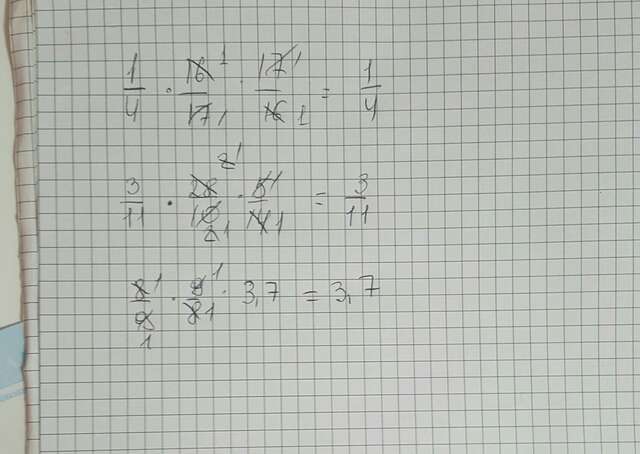 1/4 · 16/17 · 17/16 = 1/4
3/11 · 28/10 · 5/14 = 3/11
8/9 · 9/8 · 3,7 = 3,7